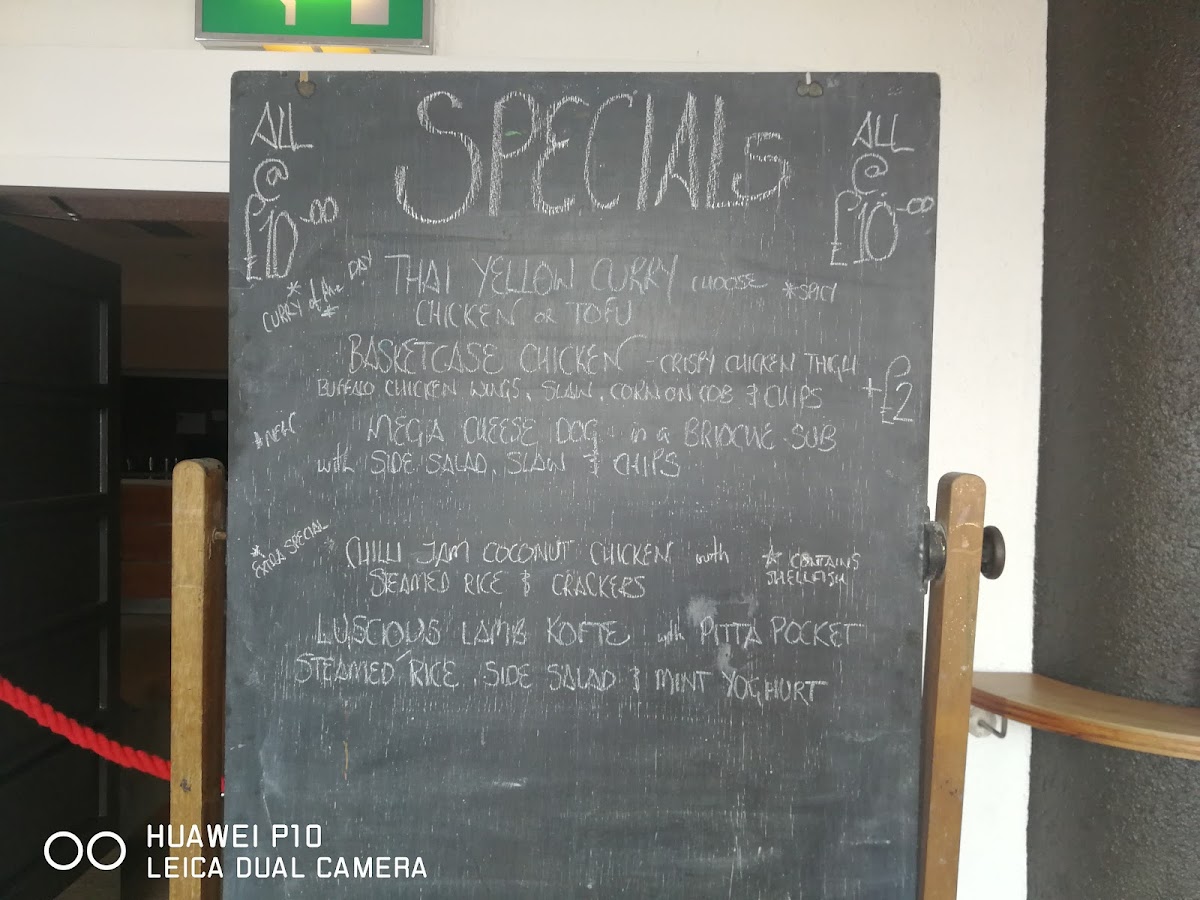 SPECIALS
ALL
@
£10-00
ALL
@
£10-00
*CURRY of the DAY*
THAI YELLOW CURRY CHOOSE *SPICY
CHICKEN or TOFU
BASKETCASE CHICKEN - CRISPY CHICKEN THIGH
BUFFALO CHICKEN WINGS, SLAW, CORN ON COB & CHIPS
+£2
*NEW
MEGA CHEESE DOG - in a BRIOCHE SUB
with SIDE SALAD, SLAW & CHIPS
*EXTRA SPECIAL
CHILLI JAM COCONUT CHICKEN with
STEAMED RICE & CRACKERS
* CONTAINS
SHELLFISH
LUSCIOUS LAMB KOFTE with PITTA POCKET
STEAMED RICE, SIDE SALAD & MINT YOGHURT
HUAWEI P10
LEICA DUAL CAMERA